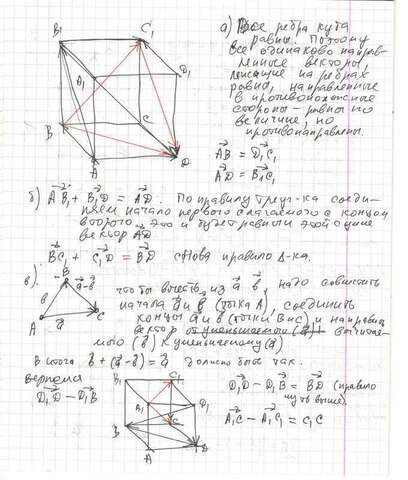 B₁
C₁
A₁
D₁
B
C
A
D
а) Все ребра куба
равны. Поэтому
все одинаково направ-
ленные векторы,
лежащие на ребрах
равны, направленные
в противоположные
стороны - равны по
величине, но
противонаправлены.
AB = D₁C₁
AD = B₁C₁
б) AB₁ + B₁D = AD. По правилу треуг-ка соеди-
няем начало первого слагаемого с концом
второго. Это и будет равным этой сумме
вектор AD
BC₁ + C₁D = BD снова правило Δ-ка.
в).
B
a-b
b
A
a
C
чтобы вычесть из a b, надо совместить
начала a и b (точка A), соединить
концы a и b (точки B и C) и направить
вектор от уменьшаемого (a) вычитае-
мого (b) к уменьшаемому (a)
В итоге b + (a-b) = a должно быть так.
вернемся
D₁D - D₁B
B₁
C₁
A₁
D₁
B
C
A
D
D₁D - D₁B = BD (правило
чуть выше).
A₁C - A₁C₁ = C₁C